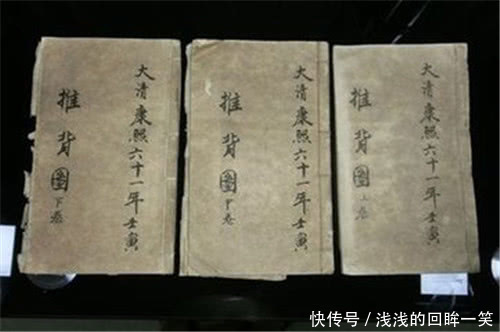 大清康熙六十一年壬寅
推背圖
上卷
大清康熙六十一年壬寅
推背圖
中卷
大清康熙六十一年壬寅
推背圖
下卷
快传号/浅浅的回眸一笑